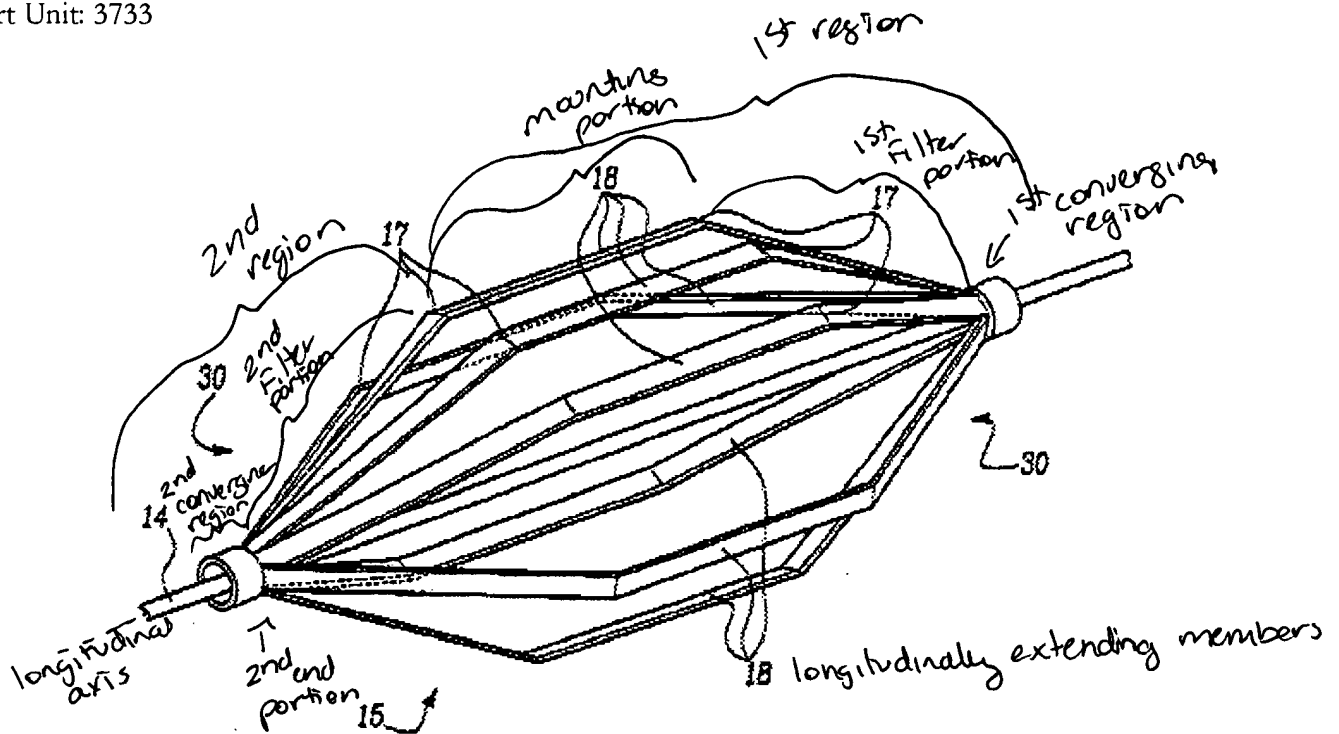 rt Unit: 3733
1st region
mounting
portion
1st
Filter
portion
18
17
1st converging
region
2nd
region
17
2nd
Filter
portion
30
30
2nd
converging
region
14
longitudinal
axis
2nd
end
portion
15
18 longitudinally extending members